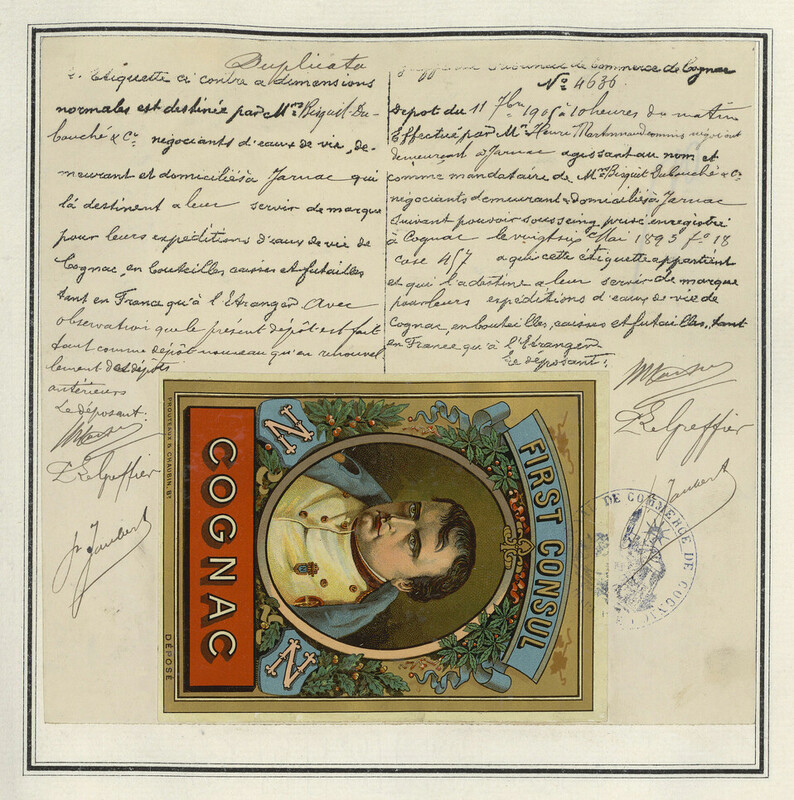 Duplicata
L'Etiquette ci contre a dimensions
normales est destinée par Mrs Bisquit Du-
bouché & Cie négociants d'eaux de vie, de-
meurant et domiciliés à Jarnac qui
la destinent a leur servir de marque
pour leurs expéditions d'eaux de vie de
Cognac, en bouteilles caisses et futailles
tant en France qu'à l'Etranger. Avec
observation que le présent dépôt est fait
tant comme dépôt nouveau qu'en renouvel
lement des dépôts
antérieurs
Le déposant.
P. Le Greffier
Jaubert
Tribunal de Commerce de Cognac
No 4636
Depot du 11 7bre 1905 à 10 heures du matin
Effectué par Mr Henri commis négociant
demeurant à Jarnac agissant au nom et
comme mandataire de Mrs Bisquit Dubouché & Cie
négociants demeurant & domiciliés à Jarnac
suivant pouvoir sous seing privé enregistré
à Cognac le vingt six Mai 1893 fo 18
case 457 a qui cette étiquette appartient
et qui la destine a leur servir de marque
pour leurs expéditions d'eaux de vie de
Cognac, en bouteilles, caisses et futailles, tant
en France qu'à l'Etranger
Le déposant:
P. Le Greffier
Jaubert
DE COMMERCE DE COGNAC
FIRST CONSUL
N
N
COGNAC
PROUTEAUX & CHAUBIN, Bx
DÉPOSÉ